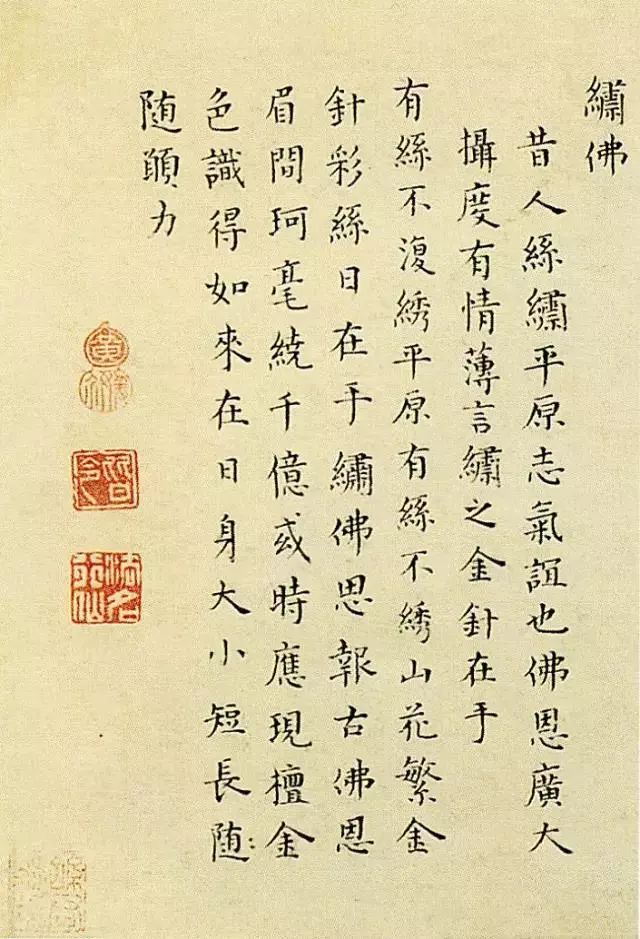 繡佛
昔人絲繡平原志氣誼也佛恩廣大
攝度有情薄言繡之金針在手
有絲不復綉平原有絲不綉山花繁金
針彩絲日在手繡佛思報古佛恩
眉間珂毫繞千億或時應現檀金
色識得如來在日身大小短長随
随願力